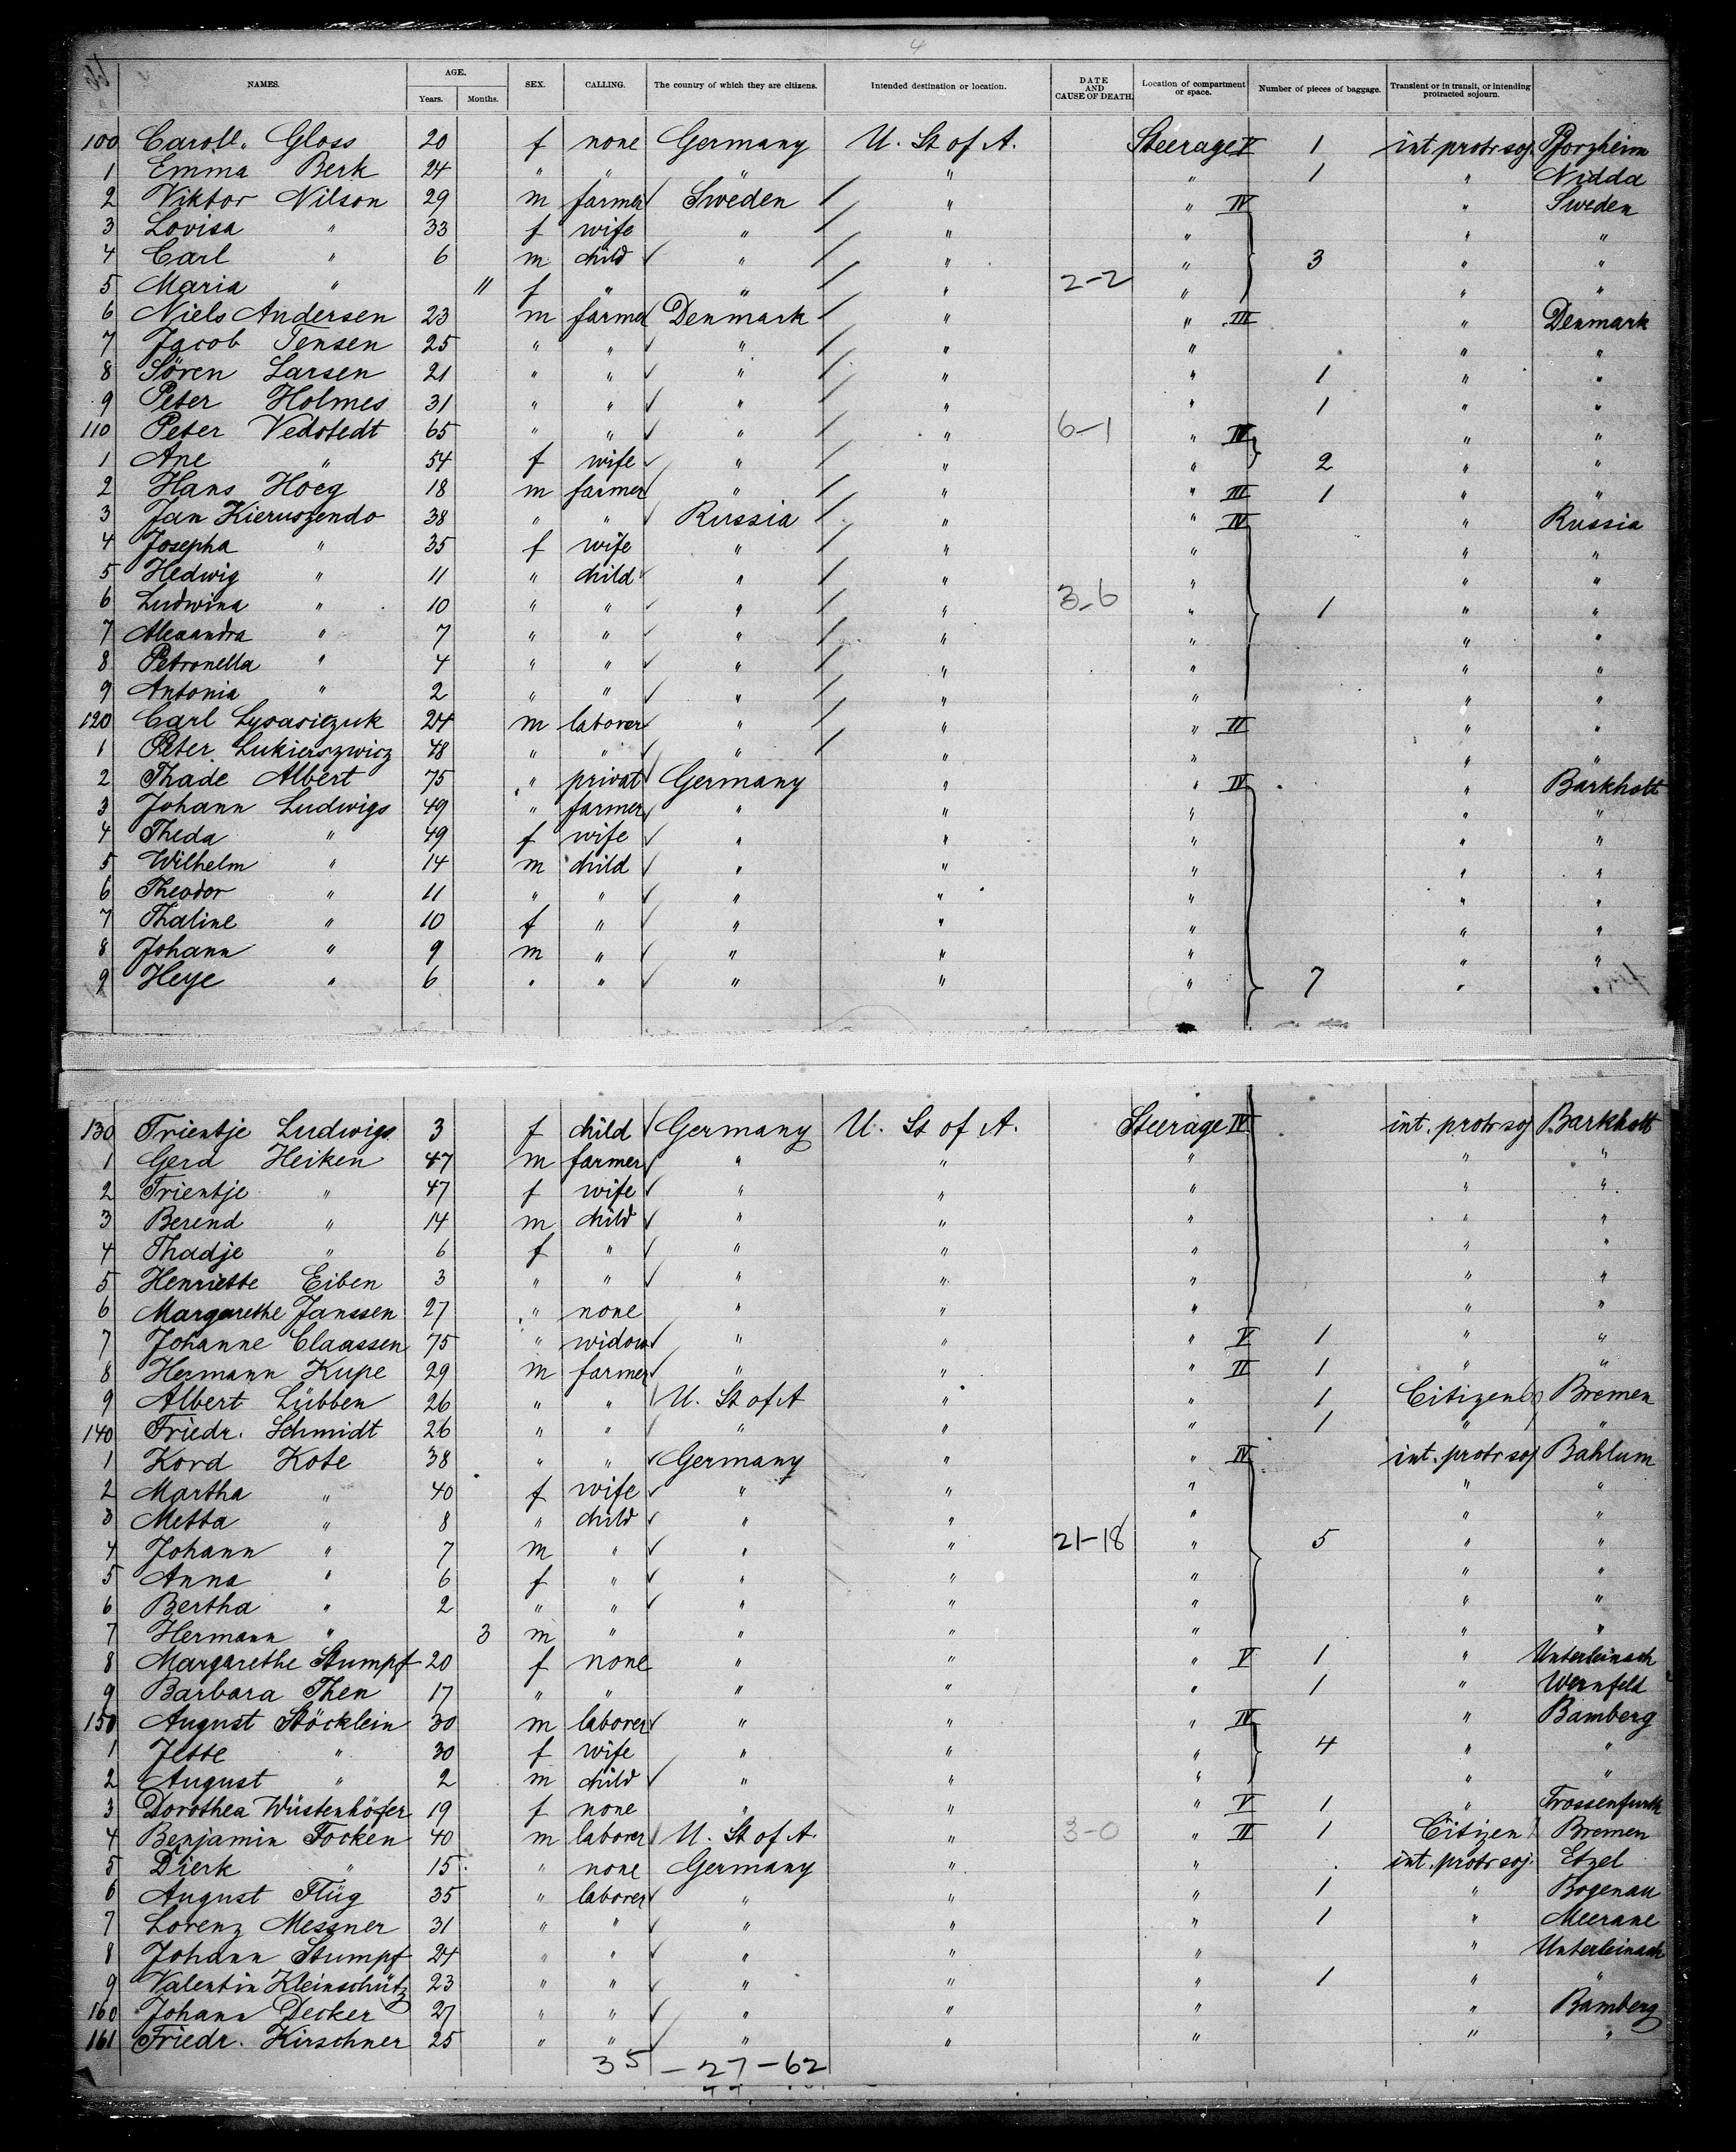 4
NAMES. AGE. Years. Months. SEX. CALLING. The country of which they are citizens. Intended destination or location. DATE AND CAUSE OF DEATH. Location of compartment or space. Number of pieces of baggage. Transient or in transit, or intending protracted sojourn.
100 Caroll. Gloss 20 f none Germany U. St of A. Steerage V 1 int. protr soj. Pforzheim
1 Emma Berk 24 " " " " " 1 " Nidda
2 Viktor Nilson 29 m farmer Sweden " " IV " Sweden
3 Lovisa " 33 f wife " " " " "
4 Carl " 6 m child " " " 3 " "
5 Maria " 11 f " " " 2-2 " " "
6 Niels Andersen 23 m farmer Denmark " " III " Denmark
7 Jacob Jensen 25 " " " " " " "
8 Sören Larsen 21 " " " " " 1 " "
9 Peter Holmes 31 " " " " " 1 " "
110 Peter Vedstedt 65 " " " " 6-1 " IV " "
1 Ane " 54 f wife " " " 2 " "
2 Hans Hoeg 18 m farmer " " " III 1 " "
3 Jan Kieruszendo 38 " " Russia " " IV " Russia
4 Josepha " 35 f wife " " " " "
5 Hedwig " 11 " child " " " " "
6 Ludwina " 10 " " " " 3-6 " 1 " "
7 Alexandra " 7 " " " " " " "
8 Petronella " 4 " " " " " " "
9 Antonia " 2 " " " " " " "
120 Carl Lysasiczuk 24 m laborer " " " II " "
1 Peter Lukierszwicz 48 " " " " " " "
2 Thade Albert 75 " privat Germany " " IV " Barkholt
3 Johann Ludwigs 49 " farmer " " " " "
4 Theda " 49 f wife " " " " "
5 Wilhelm " 14 m child " " " " "
6 Theodor " 11 " " " " " " "
7 Thaline " 10 f " " " " " "
8 Johann " 9 m " " " " " "
9 Heye " 6 " " " " " 7 " "
130 Trientje Ludwigs 3 f child Germany U. St of A. Steerage IV int. protr soj Barkholt
1 Gerd Heiken 47 m farmer " " " " "
2 Trientje " 47 f wife " " " " "
3 Berend " 14 m child " " " " "
4 Thadje " 6 f " " " " " "
5 Henriette Eiben 3 " " " " " " "
6 Margarethe Janssen 27 " none " " " " "
7 Johanne Claassen 75 " widow " " " V 1 " "
8 Hermann Kupe 29 m farmer " " " II 1 " "
9 Albert Lübben 26 " " U. St of A " " 1 Citizen Bremen
140 Friedr. Schmidt 26 " " " " " 1 " "
1 Kord Kote 38 " " Germany " " IV int. protr soj Bahlum
2 Martha " 40 f wife " " " " "
3 Metta " 8 " child " " " " "
4 Johann " 7 m " " " 21-18 " 5 " "
5 Anna " 6 f " " " " " "
6 Bertha " 2 " " " " " " "
7 Hermann " 3 m " " " " " "
8 Margarethe Stumpf 20 f none " " " V 1 " Unterleinach
9 Barbara Then 17 " " " " " 1 " Wernfeld
150 August Stöcklein 30 m laborer " " " IV " Bamberg
1 Jette " 30 f wife " " " 4 " "
2 August " 2 m child " " " " "
3 Dorothea Wüstenhöfer 19 f none " " " V 1 " Trossenfurth
4 Benjamin Focken 40 m laborer U. St of A. " 3-0 " II 1 Citizen Bremen
5 Dierk " 15 " none Germany " " int. protr soj. Etzel
6 August Flüg 35 " laborer " " " 1 " Bogenau
7 Lorenz Messner 31 " " " " " 1 " Meerane
8 Johann Stumpf 24 " " " " " " Unterleinach
9 Valentin Kleinschütz 23 " " " " " 1 " "
160 Johann Decker 27 " " " " " " Bamberg
161 Friedr. Kirschner 25 " " " " " " "
35 - 27 - 62